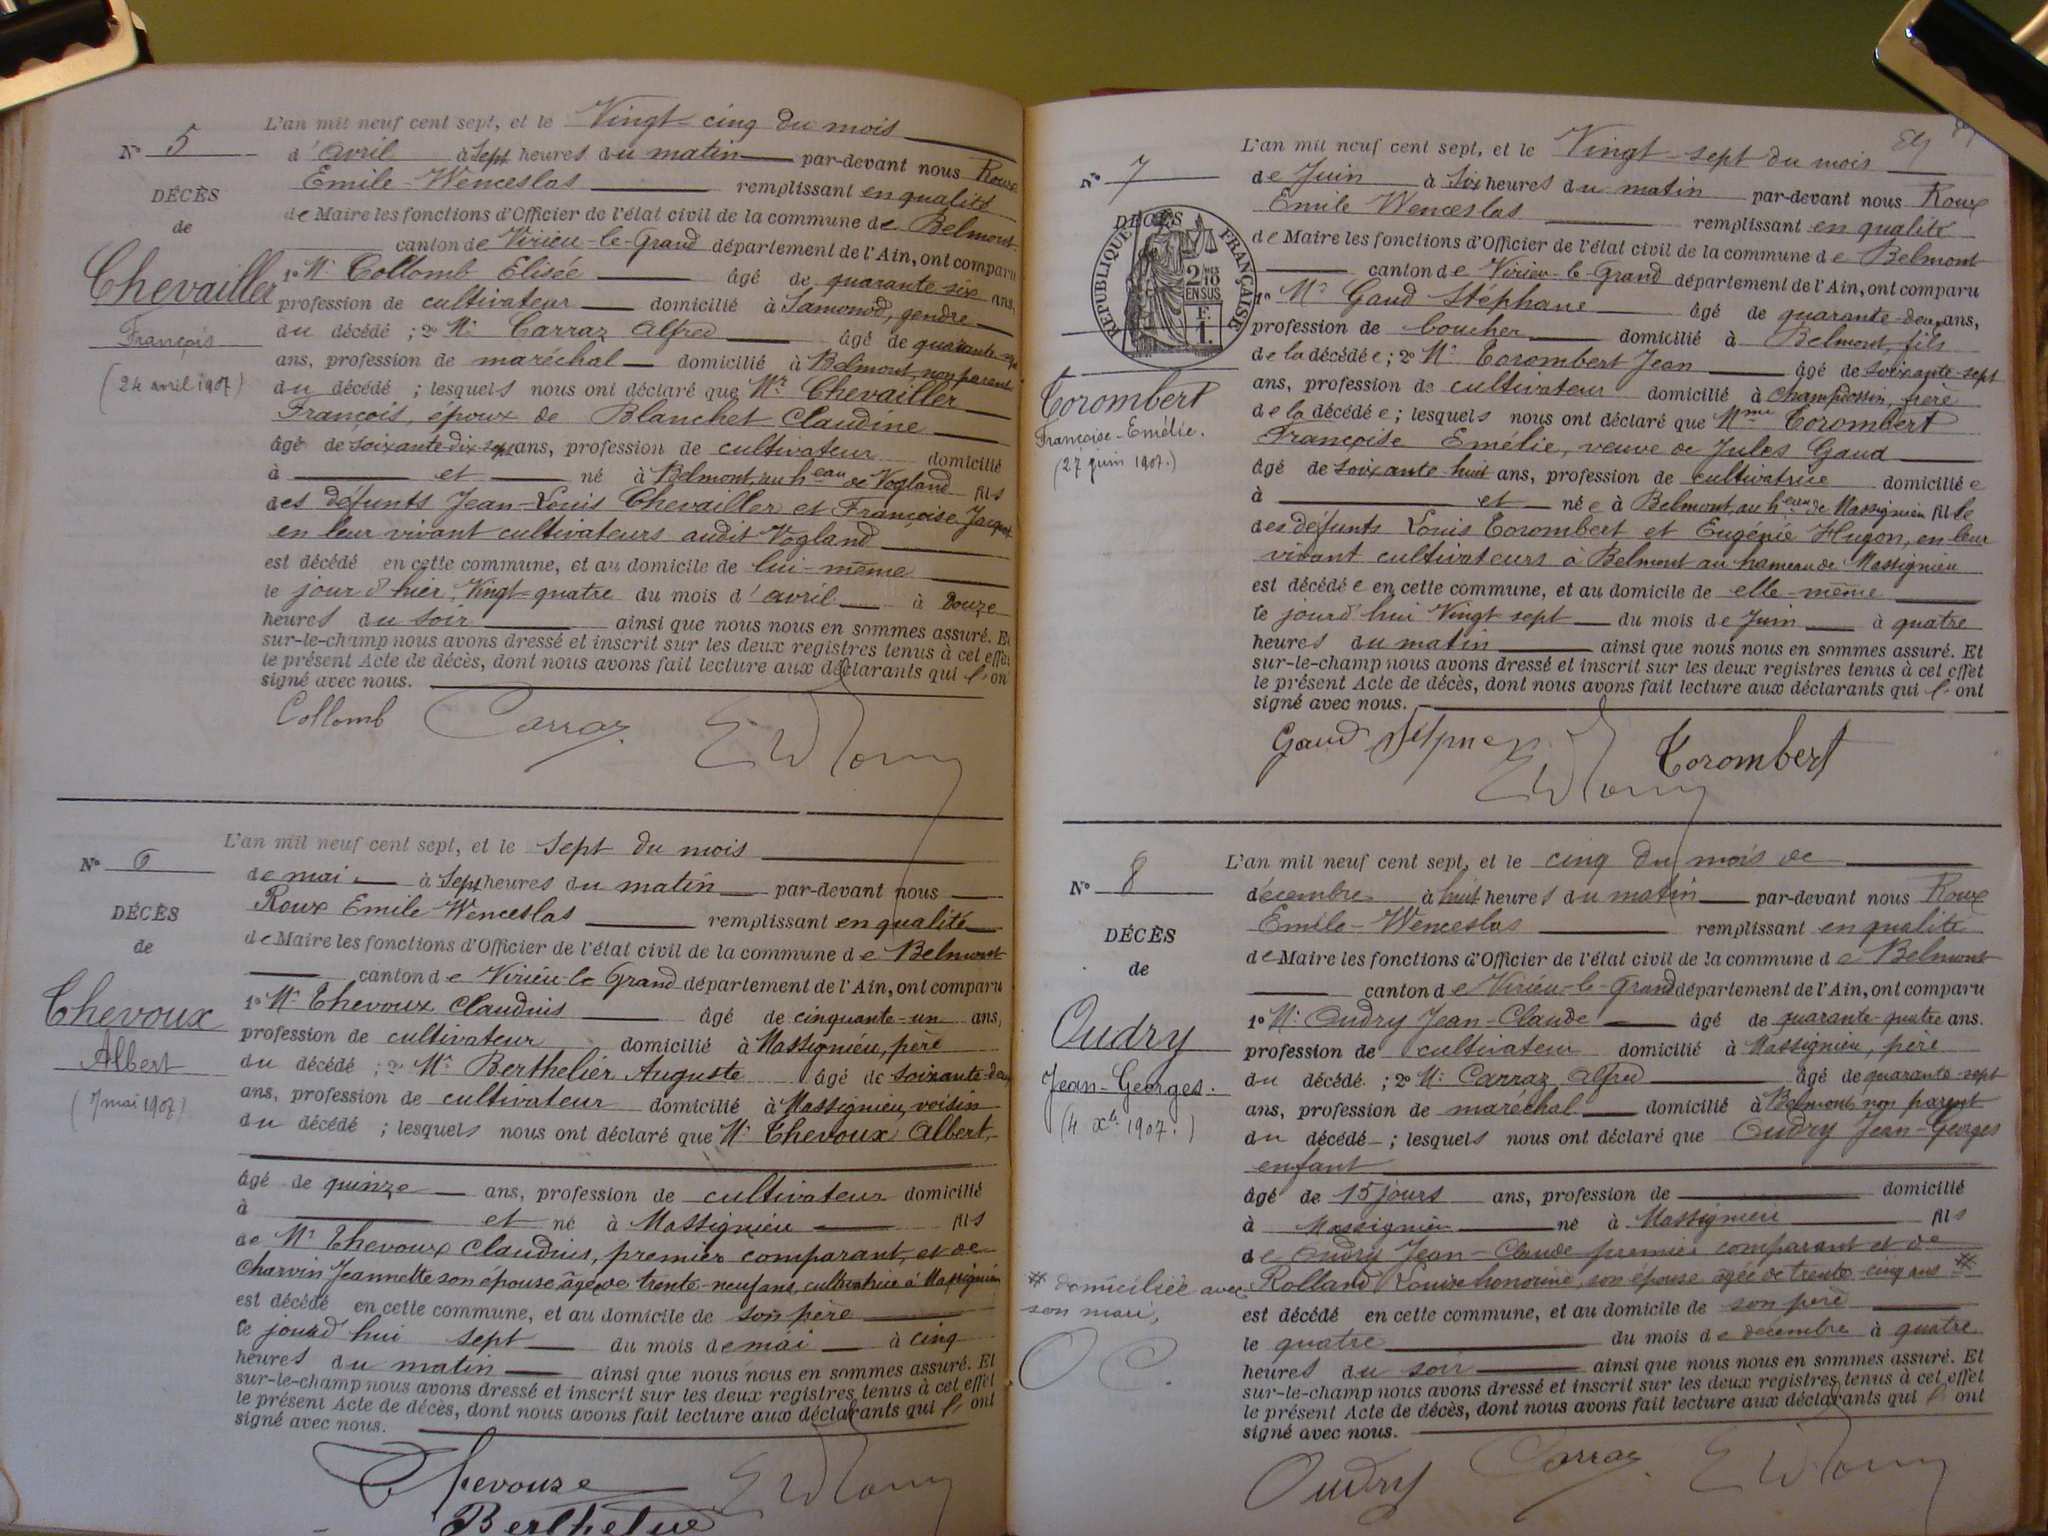 L'an mil neuf cent sept, et le Vingt-cinq du mois
N° 5
d'avril à Sept heures du matin par-devant nous Roux
DÉCÈS
Emile-Wenceslas remplissant en qualité
de
de Maire les fonctions d'Officier de l'état civil de la commune de Belmont
canton de Virieu-le-Grand département de l'Ain, ont comparu
Chevailler
1° Mr Collomb Elisée âgé de quarante six ans,
profession de cultivateur domicilié à Samonod, gendre
François
du décédé ; 2° Mr Carraz Alfred âgé de quarante
(24 avril 1907)
ans, profession de maréchal domicilié à Belmont, non parent
du décédé ; lesquels nous ont déclaré que Mr Chevailler
François, époux de Blanchet Claudine
âgé de soixante-dix sept ans, profession de cultivateur domicilié
à et né à Belmont, au heau de Vogland fils
des défunts Jean-Louis Chevailler et Françoise
en leur vivant cultivateurs audit Vogland
est décédé en cette commune, et au domicile de lui-même
le jour d'hier, Vingt-quatre du mois d'avril à Douze
heures du soir ainsi que nous nous en sommes assuré. Et
sur-le-champ nous avons dressé et inscrit sur les deux registres tenus à cet effet
le présent Acte de décès, dont nous avons fait lecture aux déclarants qui l'on
signé avec nous.
Collomb Carraz
L'an mil neuf cent sept, et le sept du mois
N° 6
de mai à Sept heures du matin par-devant nous
DÉCÈS
Roux Emile Wenceslas remplissant en qualité
de
de Maire les fonctions d'Officier de l'état civil de la commune de Belmont
canton de Virieu-le Grand département de l'Ain, ont comparu
Thevoux
1° Mr Thevoux Claudius âgé de cinquante-un ans,
Albert
profession de cultivateur domicilié à Massignieu, père
du décédé ; 2° Mr Berthelier Auguste âgé de soixante-deux
(7 mai 1907)
ans, profession de cultivateur domicilié à Massignieu, voisin
du décédé ; lesquels nous ont déclaré que Mr Thevoux Albert,
âgé de quinze ans, profession de cultivateur domicilié
à et né à Massignieu fils
de Mr Thevoux Claudius, premier comparant, et de
Charvin Jeannette son épouse âgée de trente-neuf ans, cultivatrice à Massignieu
est décédé en cette commune, et au domicile de son père
le jourd'hui sept du mois de mai à cinq
heures du matin ainsi que nous nous en sommes assuré. Et
sur-le-champ nous avons dressé et inscrit sur les deux registres tenus à cet effet
le présent Acte de décès, dont nous avons fait lecture aux déclarants qui l'ont
signé avec nous.
Thevoux
L'an mil neuf cent sept, et le Vingt-sept du mois
N° 7
de Juin à Six heures du matin par-devant nous Roux
DÉCÈS
Emile Wenceslas remplissant en qualité
de Maire les fonctions d'Officier de l'état civil de la commune de Belmont
RÉPUBLIQUE FRANÇAISE
2/10 EN SUS
F. 1.
canton de Virieu-le-Grand département de l'Ain, ont comparu
1° Mr Gaud Stéphane âgé de quarante-deux ans,
profession de boucher domicilié à Belmont, fils
de la décédée ; 2° Mr Torombert Jean âgé de soixante-sept
Torombert
ans, profession de cultivateur domicilié à Champdossin, frère
Françoise-Emélie.
de la décédée ; lesquels nous ont déclaré que Mme Torombert
(27 juin 1907.)
Françoise Emélie, veuve de Jules Gaud
âgé de soixante-huit ans, profession de cultivatrice domiciliée
à et née à Belmont, au heau de Massignieu fille
des défunts Louis Torombert et Eugénie Hugon, en leur
vivant cultivateurs à Belmont au hameau de Massignieu
est décédée en cette commune, et au domicile de elle-même
le jourd'hui Vingt sept du mois de Juin à quatre
heures du matin ainsi que nous nous en sommes assuré. Et
sur-le-champ nous avons dressé et inscrit sur les deux registres tenus à cet effet
le présent Acte de décès, dont nous avons fait lecture aux déclarants qui l'ont
signé avec nous.
Gaud Torombert
L'an mil neuf cent sept, et le cinq du mois de
N° 8
décembre à huit heures du matin par-devant nous Roux
DÉCÈS
Emile-Wenceslas remplissant en qualité
de
de Maire les fonctions d'Officier de l'état civil de la commune de Belmont
canton de Virieu-le-Grand département de l'Ain, ont comparu
Oudry
1° Mr Oudry Jean-Claude âgé de quarante-quatre ans.
profession de cultivateur domicilié à Massignieu, père
Jean-Georges.
du décédé ; 2° Mr Carraz Alfred âgé de quarante-sept
(4 Xbre 1907.)
ans, profession de maréchal domicilié à Belmont non parent
du décédé ; lesquels nous ont déclaré que Oudry Jean-Georges
enfant
âgé de 15 jours ans, profession de domicilié
à Massignieu né à Massignieu fils
de Oudry Jean-Claude premier comparant et de
Rolland Louise honorine, son épouse agée de trente-cinq ans #
# domiciliée avec
son mari,
est décédé en cette commune, et au domicile de son père
le quatre du mois de décembre à quatre
heures du soir ainsi que nous nous en sommes assuré. Et
sur-le-champ nous avons dressé et inscrit sur les deux registres tenus à cet effet
le présent Acte de décès, dont nous avons fait lecture aux déclarants qui l'ont
signé avec nous.
Oudry Carraz